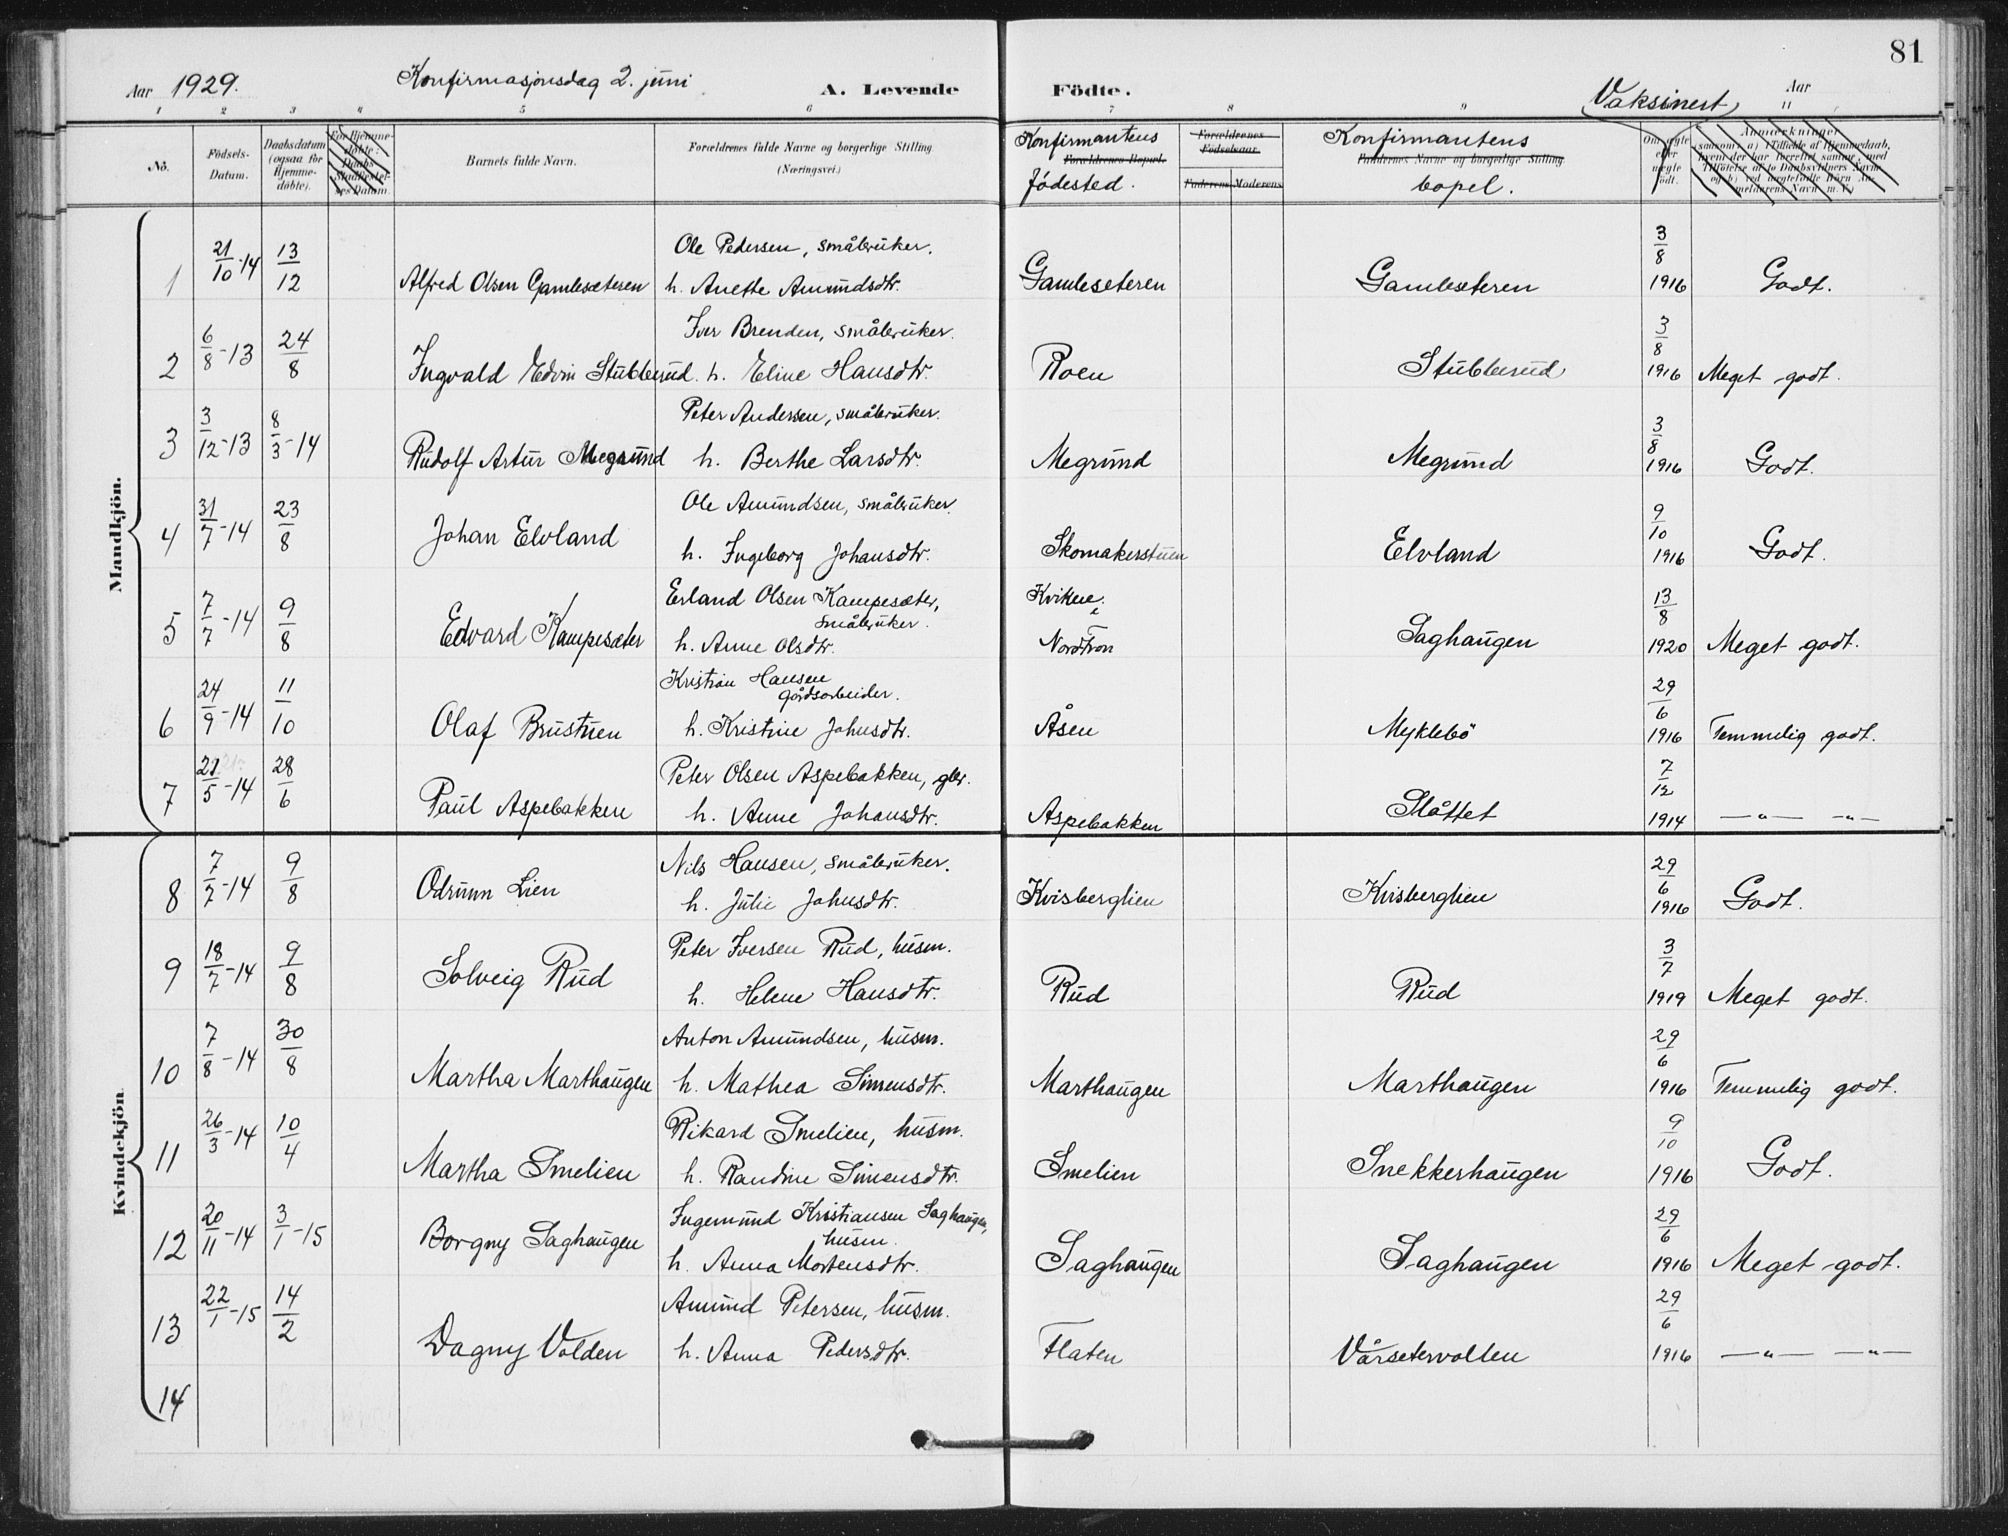 81
Aar 1929. Konfirmasjonsdag 2. juni A. Levende Födte. Vaksinert Aar
1 2 3 4 5 6 7 8 9 11
No. Födsels-Datum. Daabsdatum (ogsaa for Hjemmedöbte). Barnets fulde Navn. Forældrenes fulde Navne og borgerlige Stilling (Næringsvei.) Konfirmantens fødested. Forældrenes Bopæl. Forældrenes Födselsaar. Faderens Moderens Konfirmantens bopel. Faddernes Navne og borgerlige Stilling. Om ægte eller uægte födt. Anmærkninger
Mandkjön.
Ole Pedersen, småbruker.
1 21/10-14 13/12 Alfred Olsen Gamlesæteren h. Anette Amundsdtr. Gamleseteren Gamleseteren 3/8 1916 Godt.
Iver Brenden, småbruker.
2 6/8-13 24/8 Ingvald Edvin Stubberud. h. Eline Hansdtr. Roen Stubberud 3/8 1916 Meget godt.
Peter Andersen, småbruker.
3 3/12-13 8/3-14 Rudolf Artur Megrund h. Berthe Larsdtr. Megrund Megrund 3/8 1916 Godt.
Ole Amundsen, småbruker.
4 31/7-14 23/8 Johan Elvland h. Ingeborg Johansdtr. Skomakerstuen Elvland 9/10 1916 Godt.
Erland Olsen Kampesæter, Kvikne i
småbruker.
5 7/7-14 9/8 Edvard Kampesæter h. Anne Olsdtr. Nordfron Saghaugen 13/8 1920 Meget godt.
Kristian Hansen
gårdsarbeider.
6 24/9-14 11/10 Olaf Brustuen h. Kristine Johnsdtr. Åsen Myklebö 29/6 1916 Temmelig godt.
Peter Olsen Aspebakken, gbr.
7 21/5-14 28/6 Paul Aspebakken h. Anne Johansdtr. Aspebakken Slåttet 7/12 1914 —"— —"—
Kvindekjön.
Nils Hansen, småbruker.
8 7/7-14 9/8 Odrunn Lien h. Julie Johnsdtr. Kvisberglien Kvisberglien 29/6 1916 Godt.
Peter Iversen Rud, husm.
9 18/7-14 9/8 Solveig Rud h. Helene Hansdtr. Rud Rud 3/7 1919 Meget godt.
Anton Amundsen, husm.
10 7/8-14 30/8 Martha Marthaugen h. Mathea Simensdtr. Marthaugen Marthaugen 29/6 1916 Temmelig godt.
Rikard Smelien, husm.
11 26/3-14 10/4 Martha Smelien h. Randine Simensdtr. Smelien Snekkerhaugen 9/10 1916 Godt.
Ingemund Kristiansen Saghaugen,
husm.
12 20/11-14 3/1-15 Borgny Saghaugen h. Anna Mortensdtr. Saghaugen Saghaugen 29/6 1916 Meget godt.
Amund Petersen, husm.
13 22/1-15 14/2 Dagny Volden h. Anna Pedersdtr. Flaten Vårsetervollen 29/6 1916 —"— —"—
14